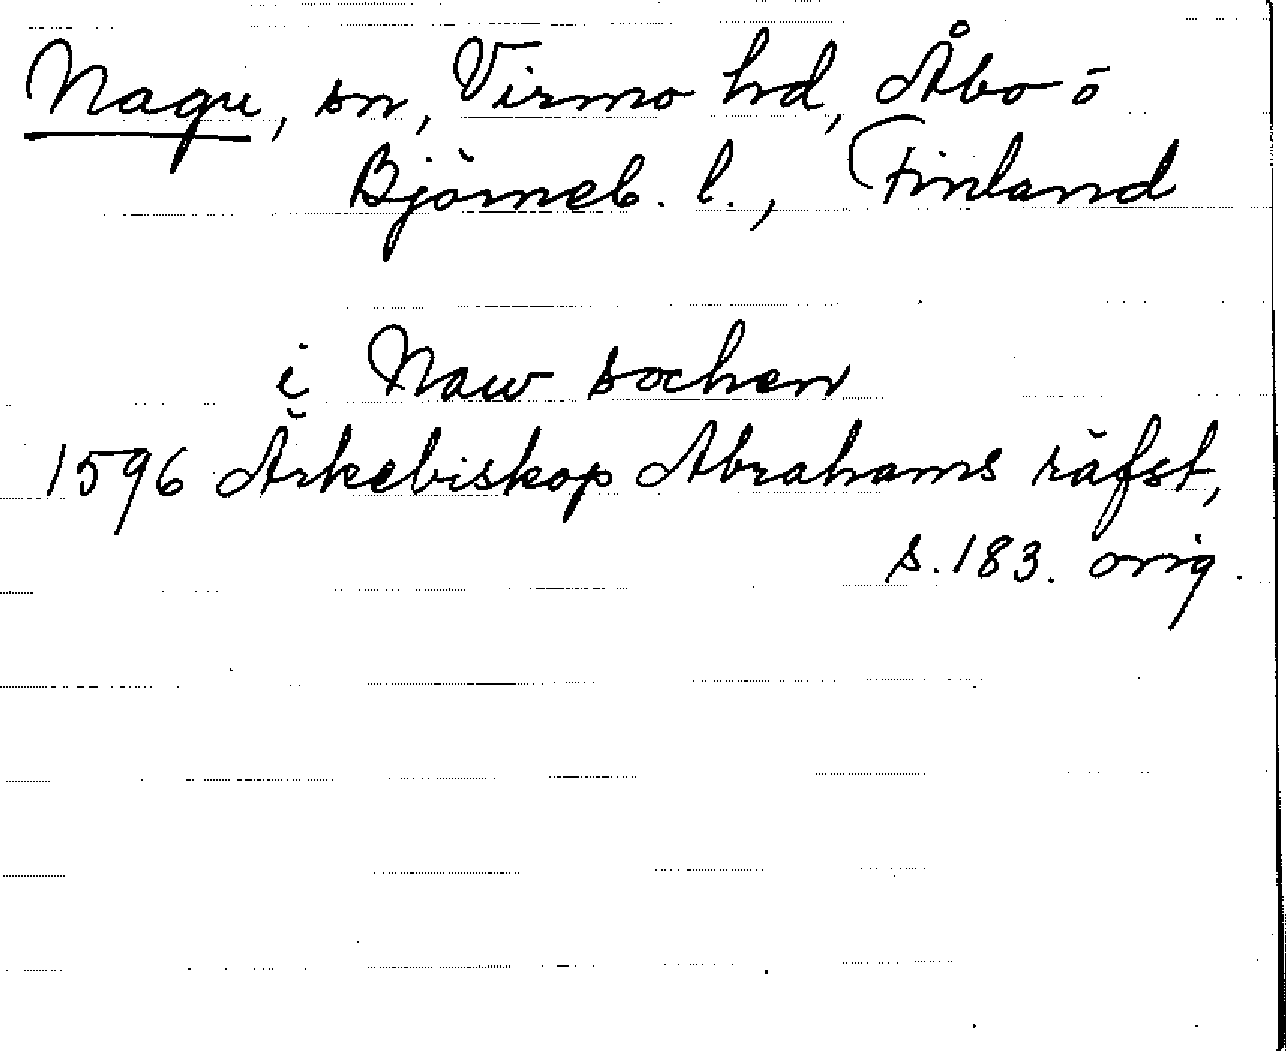 Nagu, sn, Virmo hd, Åbo o
Björneb. l., Finland
i Naw sochen
1596 Ärkebiskop Abrahams räfst,
s. 183. orig.